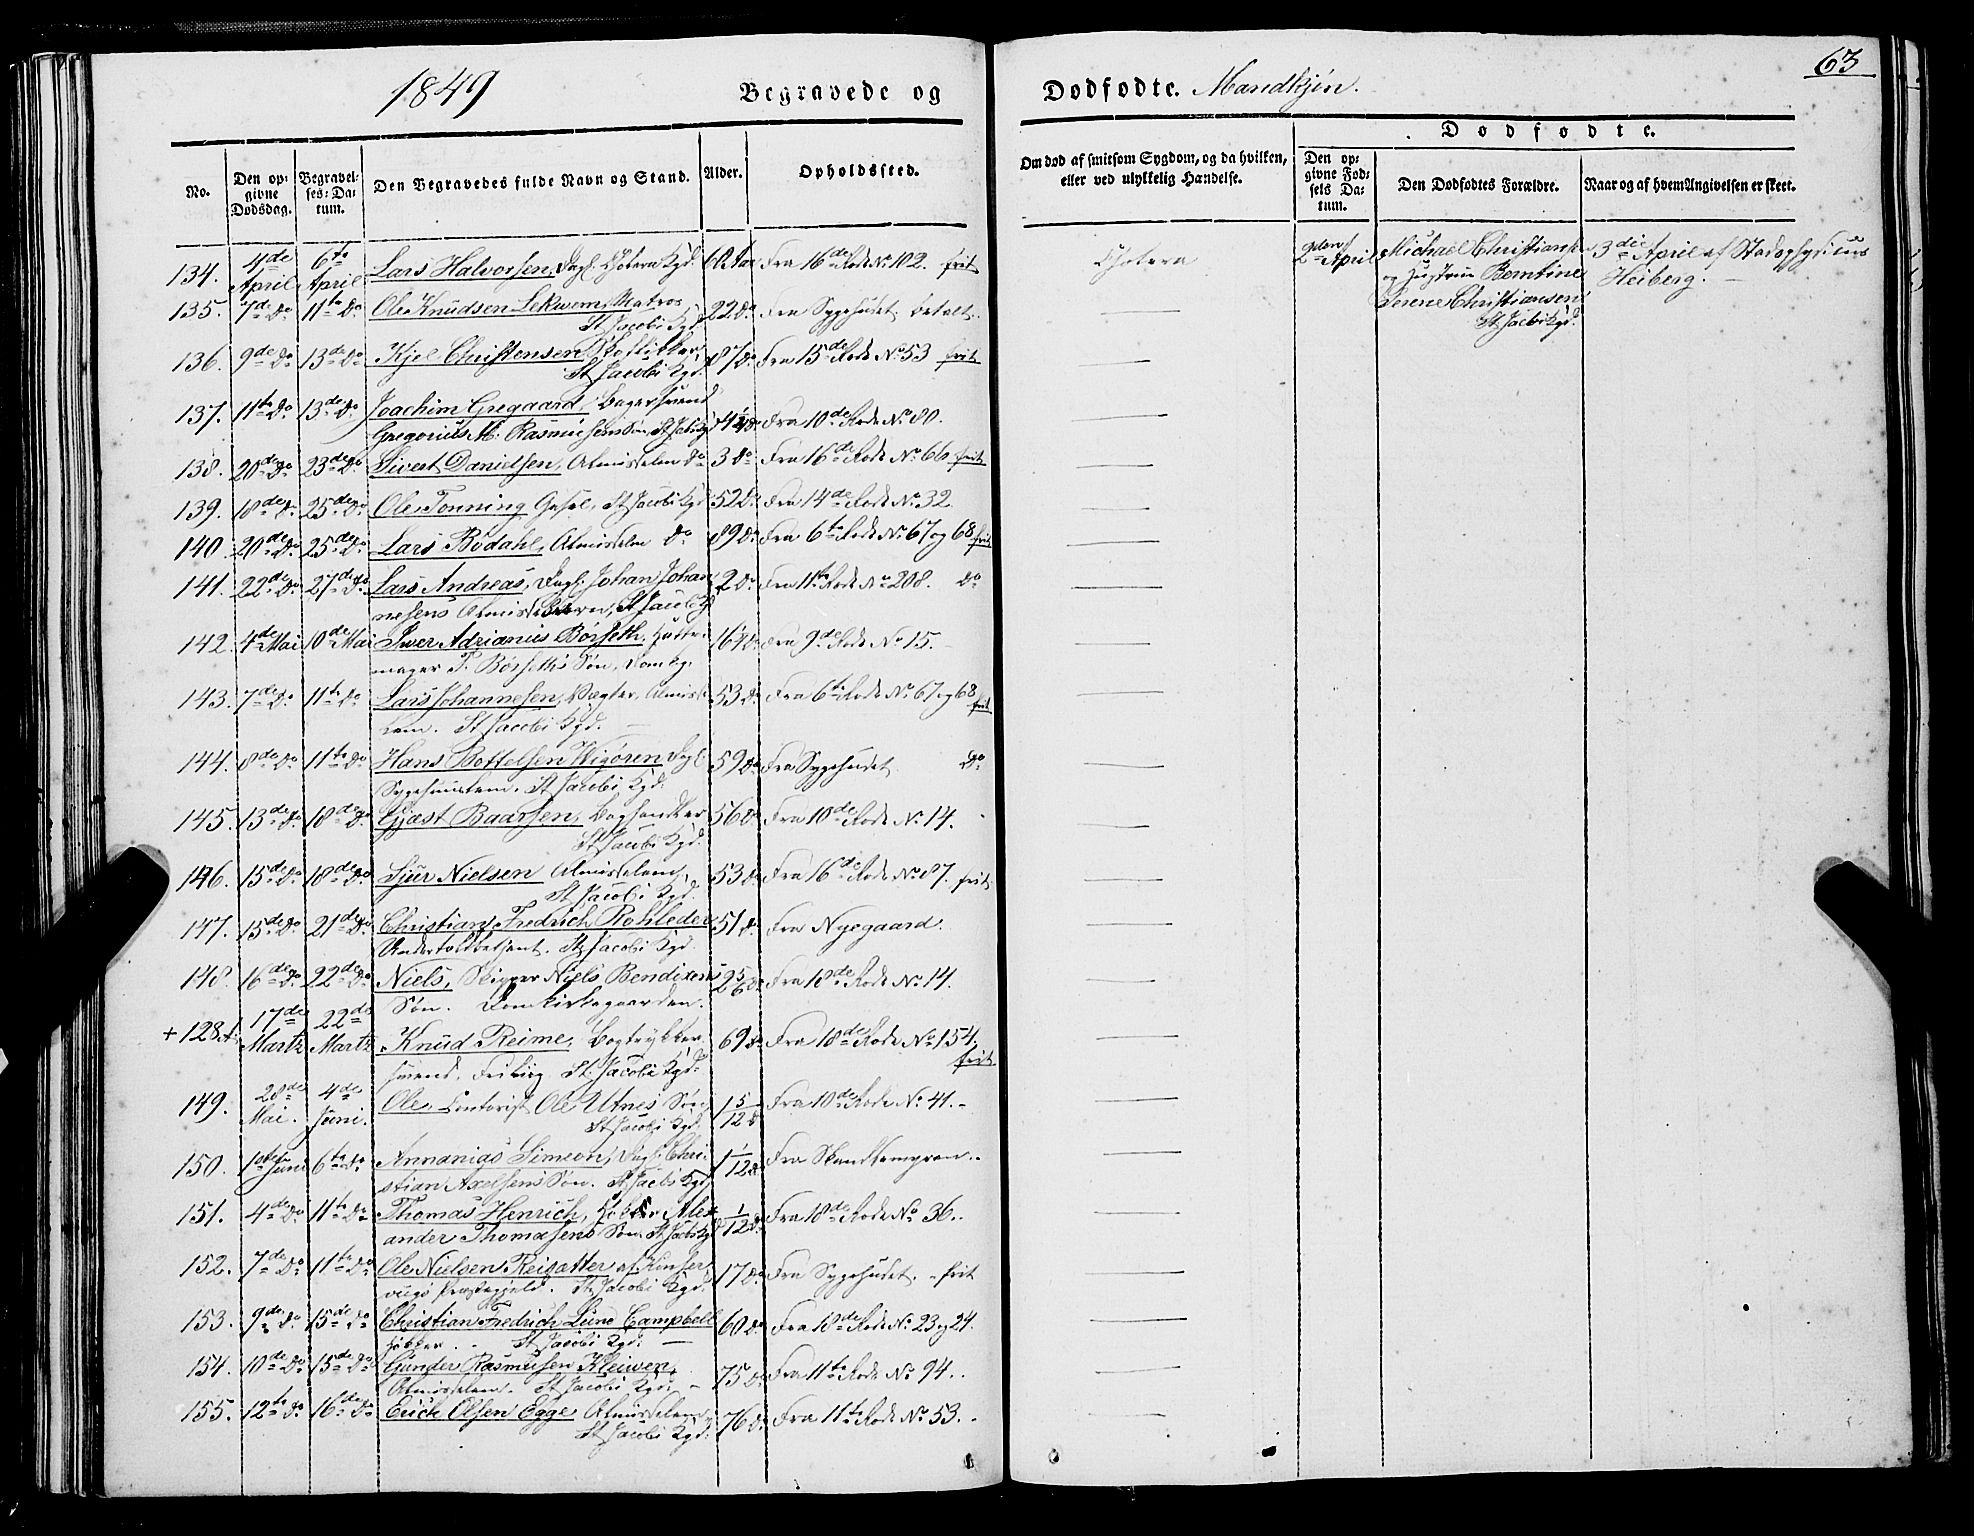 1849
Begravede og
Dodfodte. Mandkjön.
63
No.
Den opgivne Dodsdag.
Begravelses-Datum.
Den Begravedes fulde Navn og Stand.
Alder.
Opholdssted.
Om død af smitsom Sygdom, og da hvilken, eller ved ulykkelig Hændelse.
Dodfodte.
Den opgivne Fodsels Datum.
Den Dodfodtes Forældre.
Naar og af hvem Angivelsen er skeet.
134. 4de April 6te April Lars Halvorsen, Kgd. 60 Aar Fra 16de Rode No. 102. frit Cholera
2den April Michael Christiansen og Hustrue Berntine Serene Christiansen St Jacobi Kgd. 3die April af Stadsphysicus Heiberg. —
135. 7de Do 11te Do Ole Knudsen Lekwem, Matros
St Jacobi Kgd. 22 Do Fra Sygehuset. betalt.
136. 9de Do 13de Do Kjel Christensen,
St Jacobi Kgd. 87 Do Fra 15de Rode No. 53 frit
137. 11te Do 13de Do Joachim Gregaard, Bagersvend
Gregorius M. Rasmusens Søn, St Jacobi Kgd Fra 10de Rode No. 80.
138. 20de Do 23de Do Sivert Danielsen, Almisselem Do 3 Do Fra 16de Rode No. 66 frit
139. 18de Do 25de Do Ole Tonning St Jacobi Kgd 52 Do Fra 14de Rode No. 32
140. 20de Do 25de Do Lars Bødahl, Almisselem Do 89 Do Fra 6te Rode No. 67 og 68 frit
141. 22de Do 27de Do Lars Andreas, Dagl. Johan Johannesens St Jacobi Kgd 2 Do Fra 11te Rode No. 208. Do
142. 4de Mai 10de Mai Iver Adrianus Børseth, Hattemager T. Børseths Søn, Domkg. Do Fra 9de Rode No. 15.
143. 7de Do 11te Do Lars Johannesen, Vægter, Almisselem. St Jacobi Kgd. 53 Do Fra 6te Rode No. 67 og 68 frit
144. 8de Do 11te Do Hans Bottolfsen Wigøren
St Jacobi Kgd. 59 Do Fra Sygehuset. Do
145. 13de Do 18de Do Gjæst Baarsen,
St Jacobi Kgd. 56 Do Fra 18de Rode No. 14.
146. 15de Do 18de Do Sjur Nielsen Almisselem,
St Jacobi Kgd. 53 Do Fra 16de Rode No. 87. frit
147. 15de Do 21de Do Christian Fredrich Rohleder
Undertoldbetjent. St Jacobi Kgd. 51 Do Fra Nyegaard.
148. 16de Do 22de Do Niels, Skipper Niels Bendixens
Søn. Domkirkegaarden. Fra 18de Rode No. 14.
+ 128 A. 17de Martz 22de Martz Knud Reime, Bogtrykkersvend, St Jacobi Kgd. 69 Do Fra 18de Rode No. 154.
frit
149. 28de Mai. 4de Juni. Ole, Contorist Ole Utnes Søn
St Jacobi Kgd. 1 5/12 Do Fra 18de Rode No. 41.
150. 1ste Juni 6te Do Annanias Simeon, Dagl. Christian Axelsens Søn. St Jacobi Kgd. 1 1/12 Do Fra Skandsemyren.
151. 4de Do 11te Do Thomas Henrich, Høker Alexander Thomasens Søn. St Jacobi Kgd 1/12 Do Fra 18de Rode No. 36.
152. 7de Do 11te Do Ole Nielsen Reisæter af Kinservigs Præstegjeld. St Jacobi Kgd. 17 Do Fra Sygehuset. frit
153. 9de Do 15de Do Christian Fredrich Lund Campbell
Høkker. St Jacobi Kgd. 60 Do Fra 18de Rode No. 23 og 24.
154. 10de Do 15de Do Gunder Rasmusen Kleiven,
Almisselem. St Jacobi Kgd. 75 Do Fra 11te Rode No. 94.
155. 12te Do 16de Do Erich Olsen Egge, Almisselem
St Jacobi Kgd. 76 Do Fra 11te Rode No. 53.